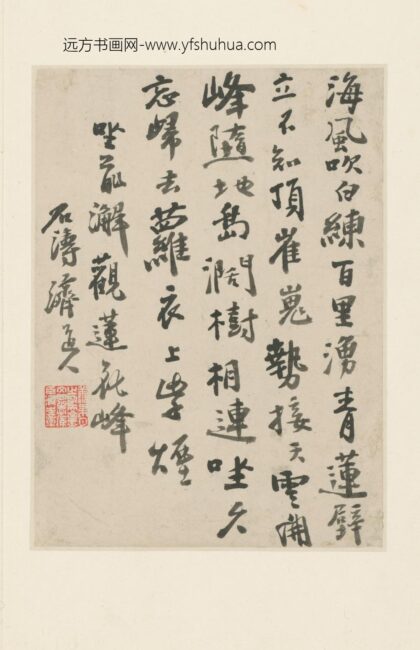 远方书画网-www.yfshuhua.com
海風吹白練百里湧青蓮壁
立不知頂崔嵬勢接天雲開
峰墮地島濶樹相連坐久
忘歸去蘿衣上紫煙
坐前澥觀蓮花峰
石濤濟道人